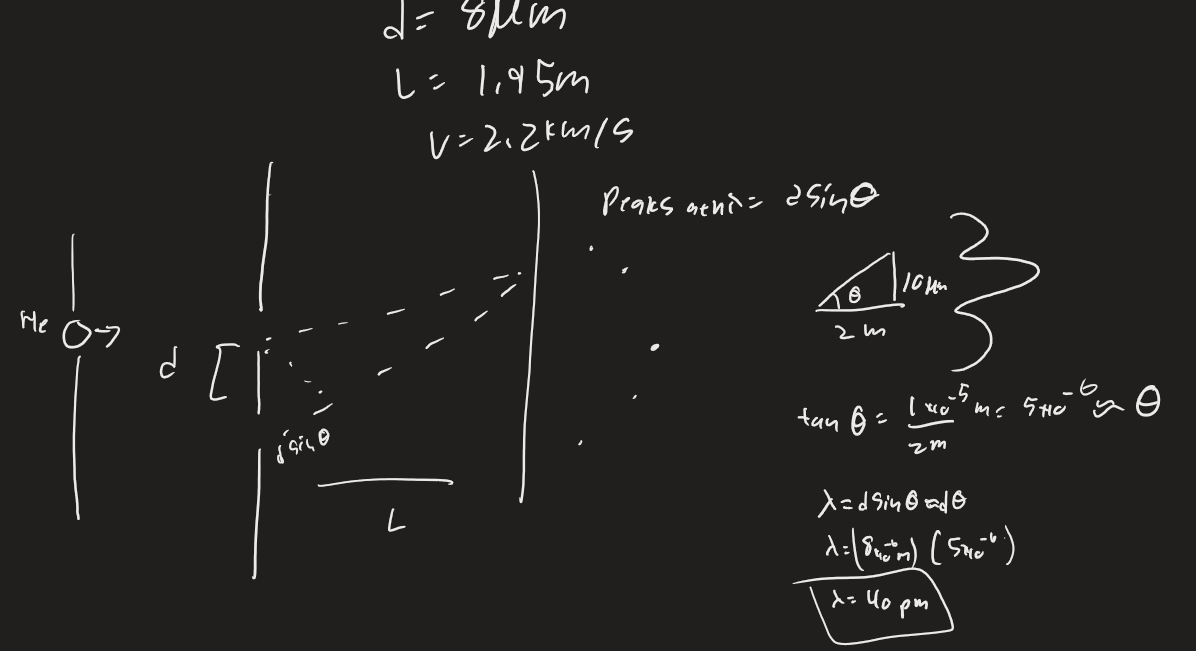 d = 8μm
L = 1.95m
V = 2.2km/s
Peaks at nλ = dsinθ
He
d
dsinθ
L
θ
10μm
2m
tan θ = 1×10⁻⁵m / 2m = 5×10⁻⁶ ≈ θ
λ = dsinθ ≈ dθ
λ = (8×10⁻⁶m)(5×10⁻⁶)
λ = 40 pm